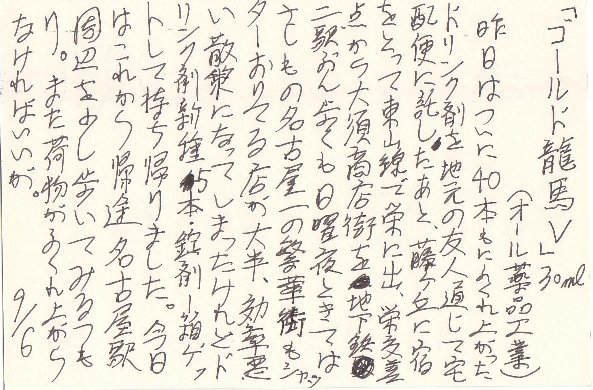 「ゴールド龍馬V」30ml
（オール薬品工業）
昨日はついに40本もにふくれ上がった
ドリンク剤を地元の友人通じて宅
配便に託したあと、藤ヶ丘に宿
をとって東山線で栄に出、栄交差
点から大須商店街を地下鉄
二駅ぶん歩くも日曜夜ときては
さしもの名古屋一の繁華街もシャッ
ターおりてる店が大半、効率悪
い散策になってしまったけれどド
リンク剤新種5本・錠剤1箱ゲッ
トして持ち帰りました。今日
はこれから帰途名古屋駅
周辺を少し歩いてみるつも
り。また荷物がふくれ上がら
なければいいが。
9/6